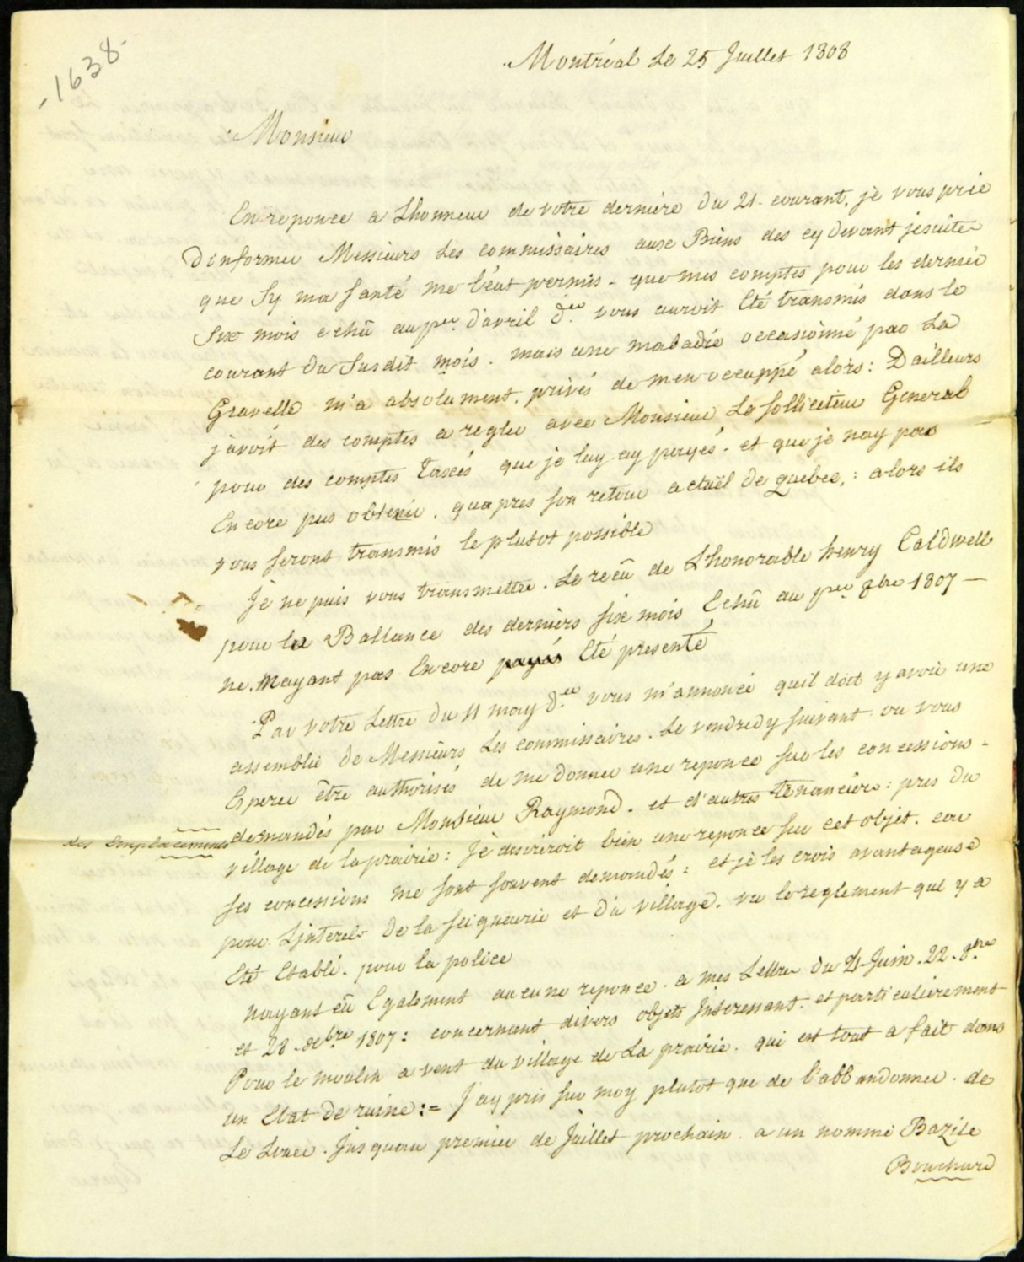 -1638-
Montréal Le 25 Juillet 1808
Monsieur
En reponce a Lhonneur de votre derniere du 21 courant, je vous prie
D'informer Messieurs Les commissaires aux Biens des cy devant jesuites
que Sy ma Santé me l'eut permis. que mes comptes pour les dernier
Six mois echû au per d'avril der vous auroit Eté transmis dans le
courant du Susdit mois. mais une maladie occasionné par La
Gravelle m'a absolument, privés de m'en occuppé alors: D'ailleurs
j'avoit des comptes a regler avec Monsieur Le Solliciteur General
pour des comptes taxés que je luy ay payés. et que je nay pas
Encore pus obtenir, quapres son retour actuel de Quebec,: alors ils
vous seront transmis le plutot possible
Je ne puis vous transmettre. Le reçû de L'honorable henry Caldwell
pour la Ballance des derniers Six mois Echû au per 8bre 1807 —
ne. mayant pas Encore Eté presenté
Par votre Lettre du 11 may der vous m'annoncé quil doit y avoir une
assemblé de Messieurs Les commissaires. Le vendredy suivant. ou vous
Esperer être authorisés de me donner une reponce sur les concessions -
des Emplacements
demandés par Monsieur Raymond. et d'autres tenanciers: pres du
village de laprairie: Je desireroit bien une reponce sur cet objet. car
ses concessions me sont souvent demandés: et je les crois avantageuse
pour L'interet de la Seigneurie et du village. vu le reglement qui y a
Eté Etabli. pour la police
nayant eû Egalement aucune reponce. a mes Lettre du 4 Juin. 22. 8bre
et 28 Xbre 1807: concernant divers objets Interessant. et particulierement
Pour le moulin a vent du village de La prairie. qui est tout a fait dans
un Etat de ruine:= J'ay pris sur moy plutot que de l'abbandonner. de
Le Louer. Jusquau premier de Juillet prochain a un nommé Bazile
Bouchard